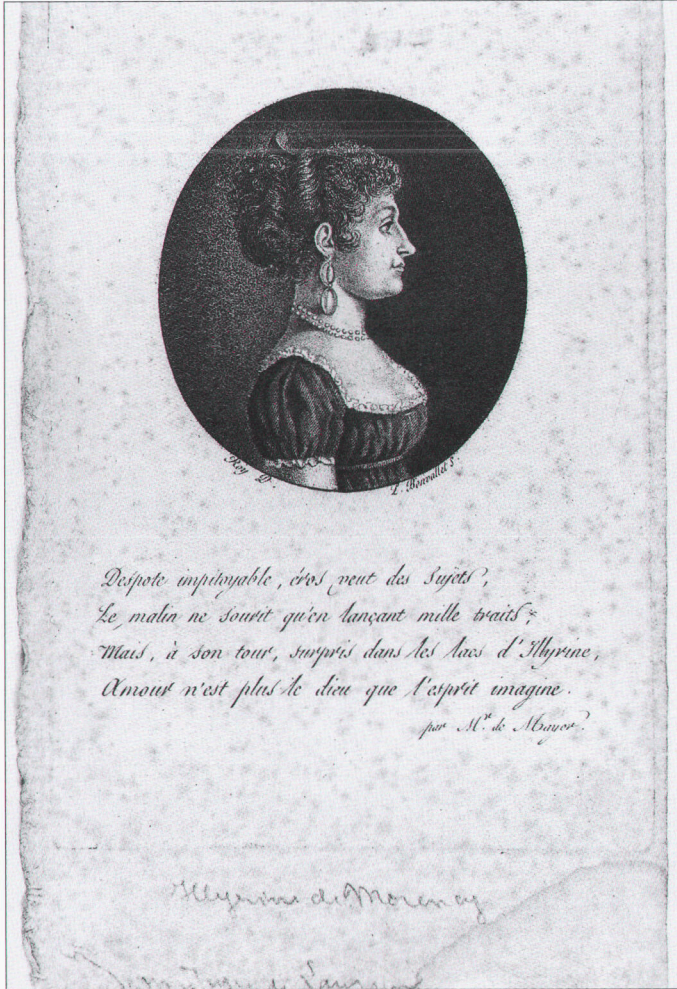 Roy D.
L. Bonvallet S.
Despote impitoyable, éros veut des Sujets,
Le malin ne sourit qu'en lançant mille traits;
Mais, à son tour, surpris dans les lacs d'Illyrine,
Amour n'est plus le dieu que l'esprit imagine.
par Mr. de Mayer.
Illyrine de Morency